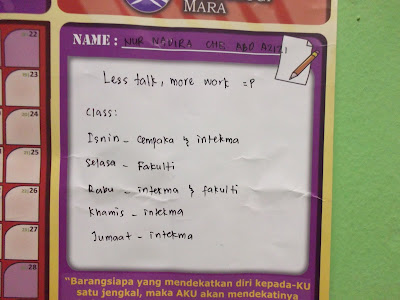 MARA
22
23
24
25
26
27
28
NAME : NUR NADIRA CHE ABD AZIZI
Less talk, more work =P
Class:
Isnin - Cempaka & intekma
Selasa - Fakulti
Rabu - intekma & fakulti
Khamis - intekma
Jumaat - intekma
"Barangsiapa yang mendekatkan diri kepada-KU
satu jengkal, maka AKU akan mendekatinya